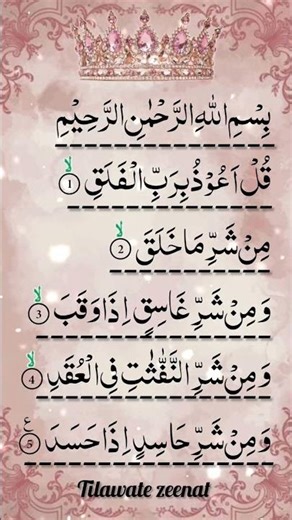 بِسْمِ اللهِ الرَّحْمٰنِ الرَّحِيْمِ
قُلْ اَعُوْذُ بِرَبِّ الْفَلَقِ ۙ ①
مِنْ شَرِّ مَا خَلَقَ ۙ ②
وَمِنْ شَرِّ غَاسِقٍ اِذَا وَقَبَ ۙ ③
وَمِنْ شَرِّ النَّفّٰثٰتِ فِى الْعُقَدِ ۙ ④
وَمِنْ شَرِّ حَاسِدٍ اِذَا حَسَدَ ع ⑤
Tilawate zeenat